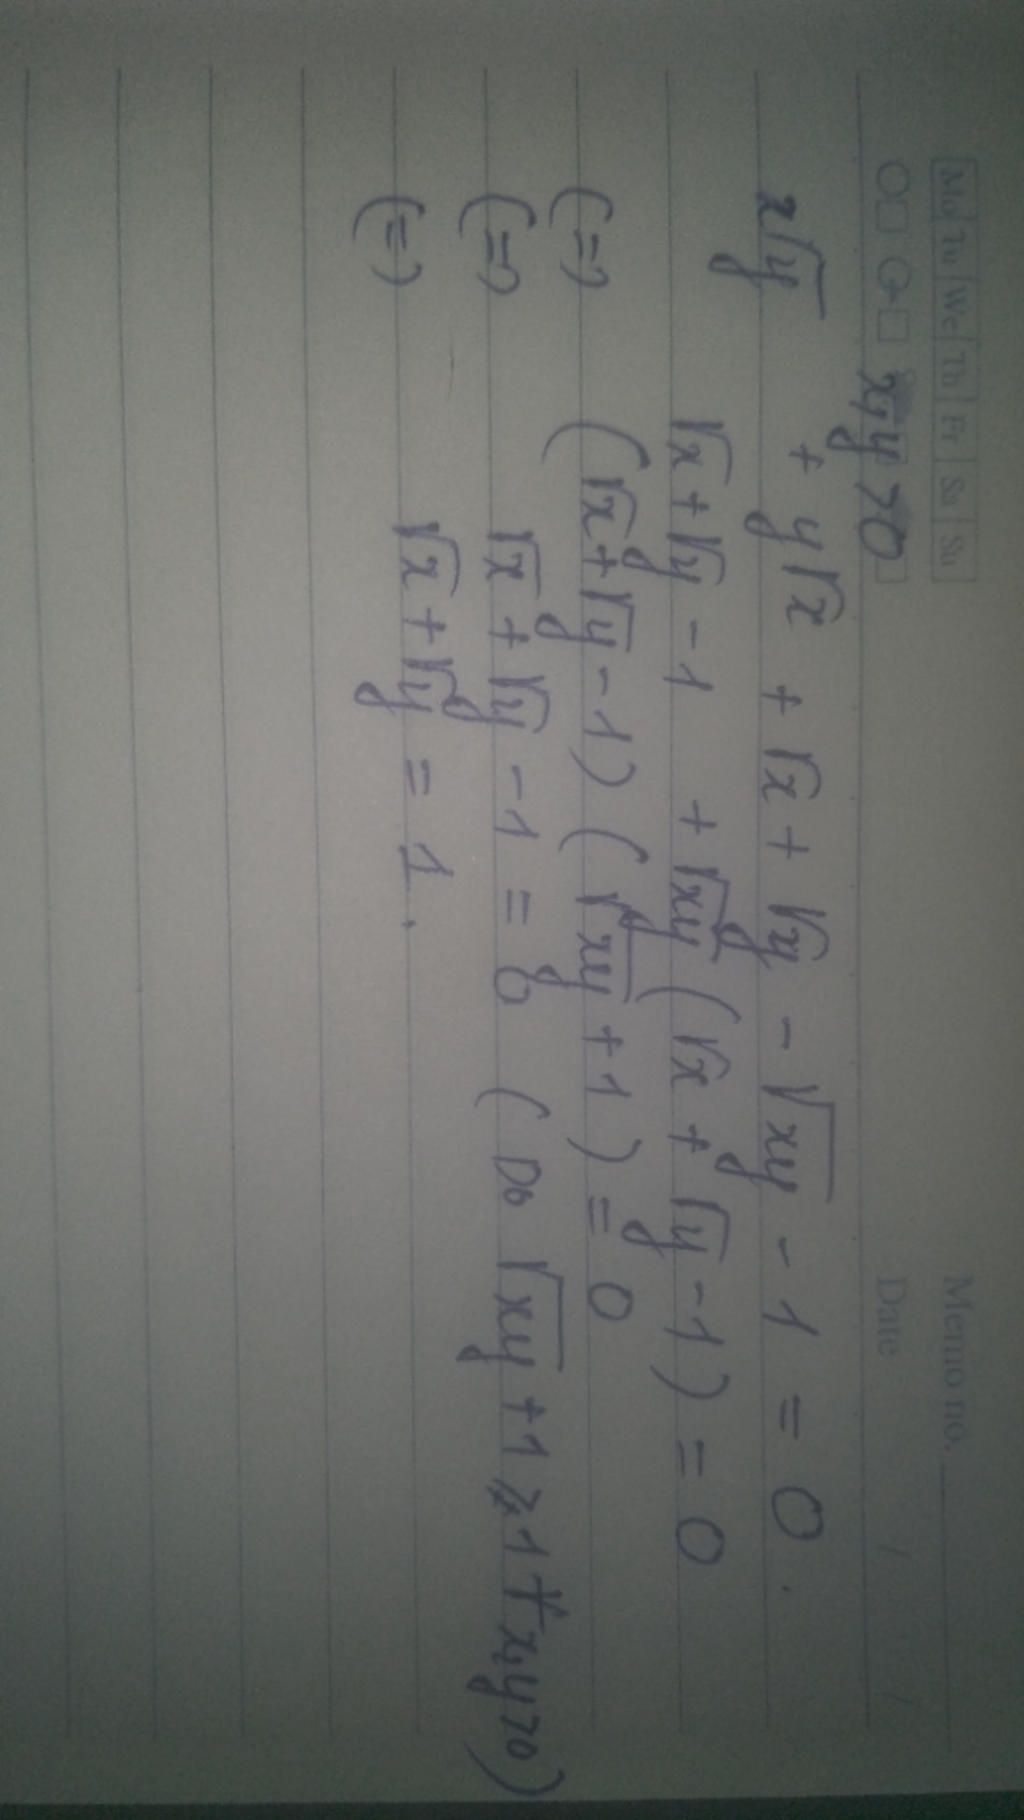 Mo Tu We Th Fr Sa Su
Memo no.
Date / /
x,y > 0
x√y + y√x + √x + √y - √xy - 1 = 0.
√x + √y - 1 + √xy (√x + √y - 1) = 0
(=) (√x + √y - 1) (√xy + 1) = 0
(=) √x + √y - 1 = 0 (Do √xy + 1 ⩾ 1 ∀ x,y > 0)
(=) √x + √y = 1.